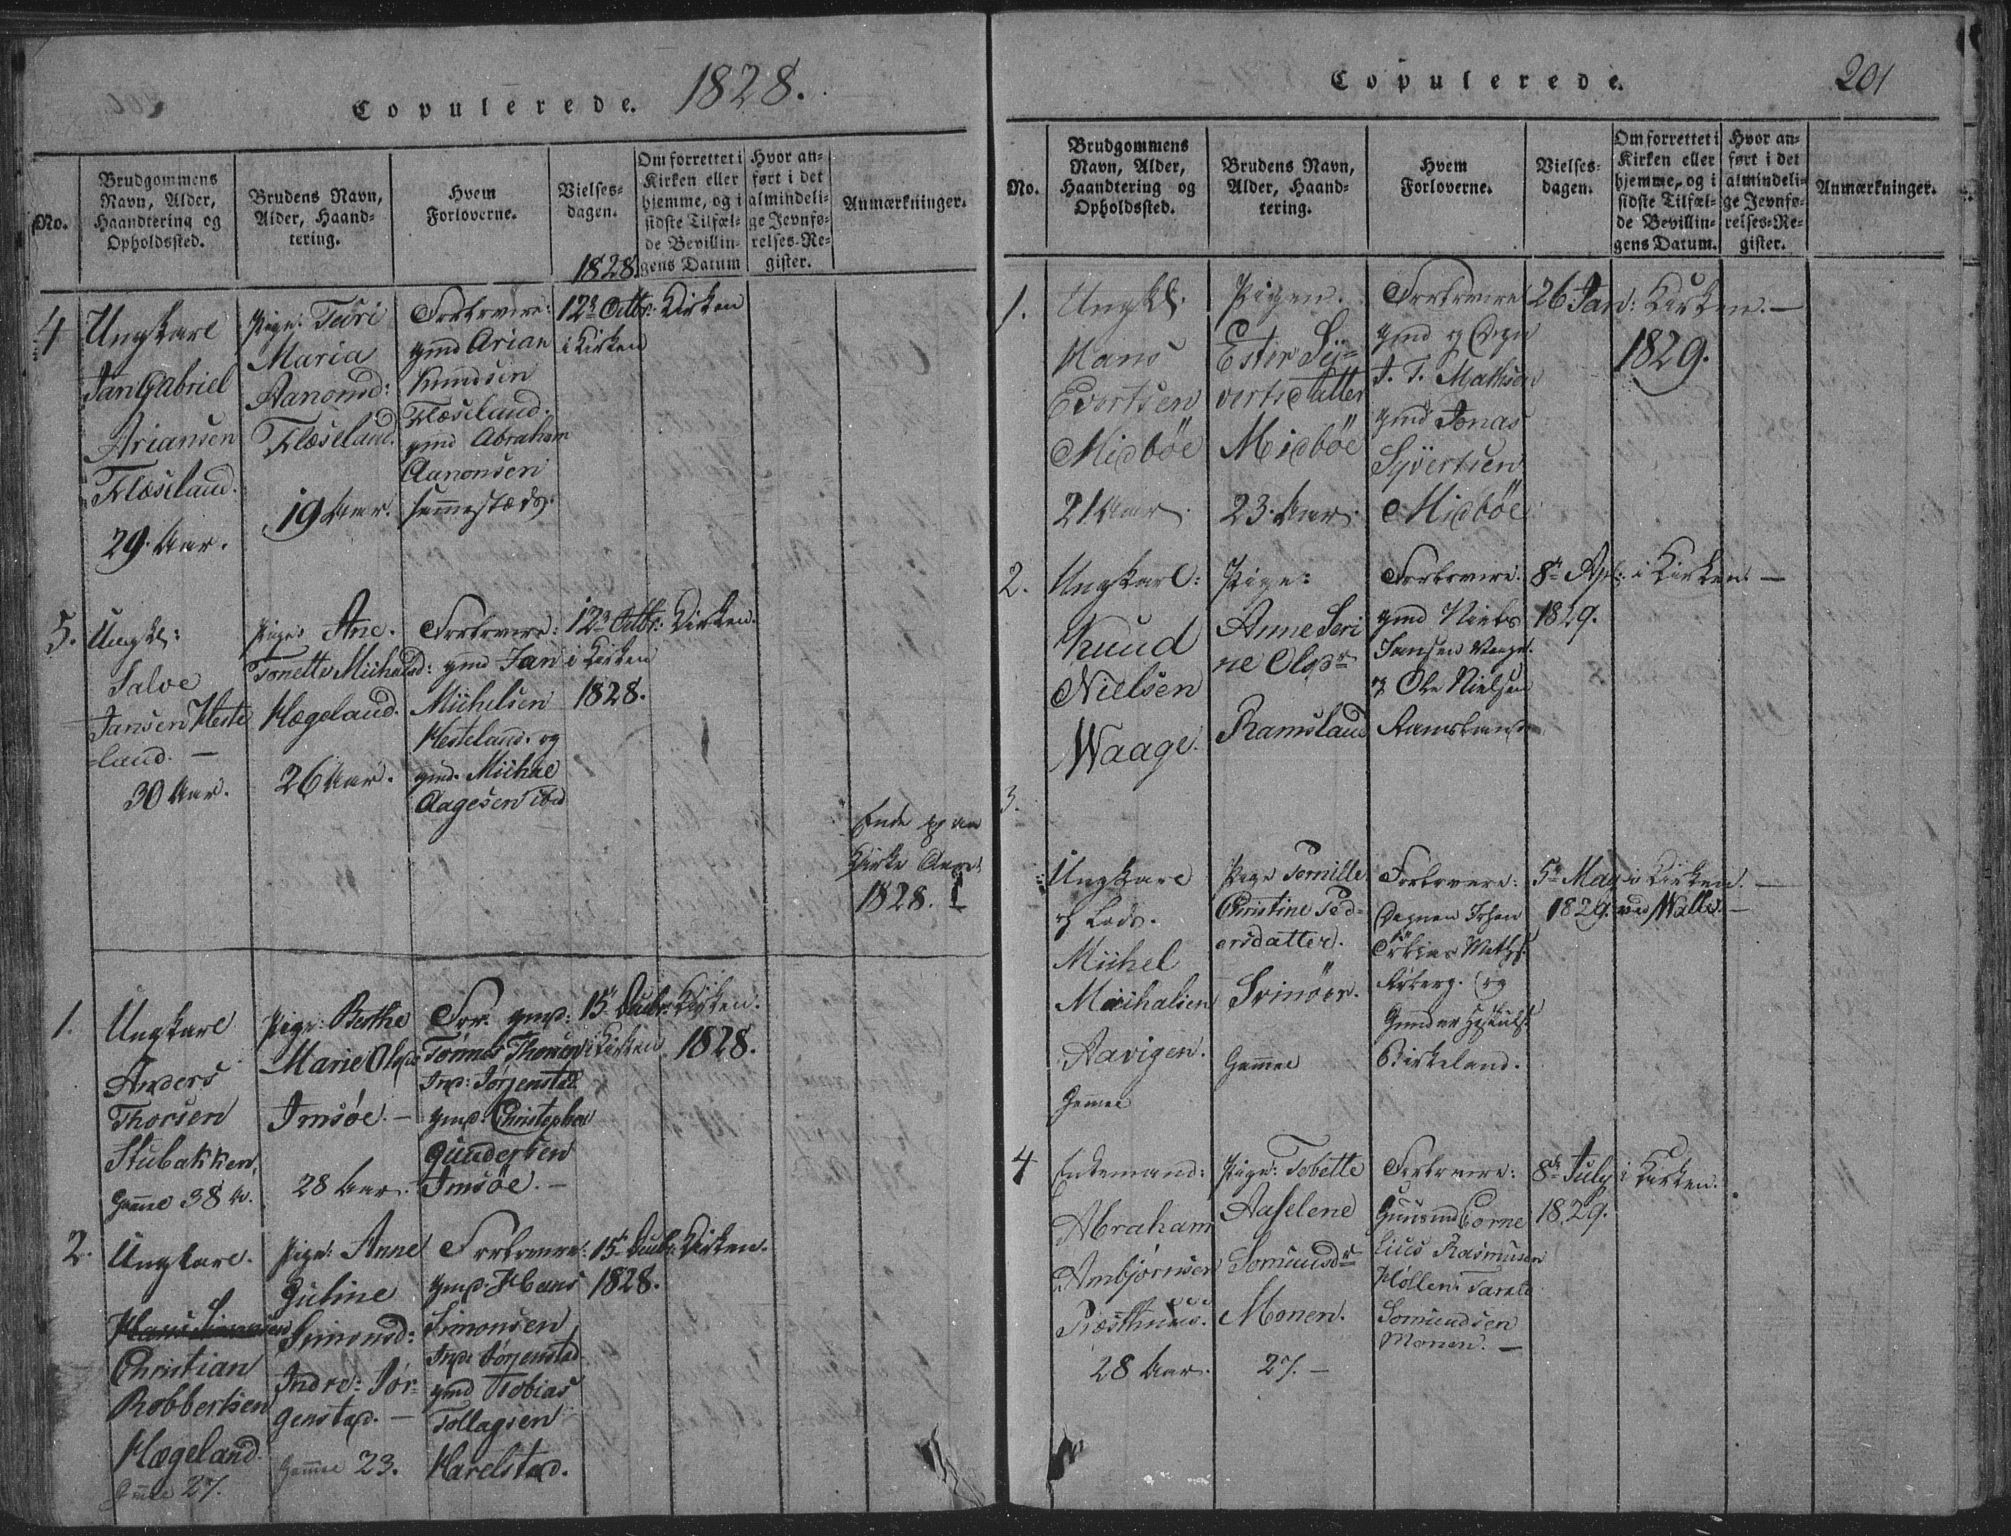 Copulerede. 1828.
No.
Brudgommens
Navn, Alder,
Haandtering og
Opholdssted.
Brudens Navn,
Alder, Haand-
tering.
Hvem
Forloverne.
Vielses-
dagen.
1828
Om forrettet i
Kirken eller
hjemme, og i
sidste Tilfæl-
de Bevillin-
gens Datum
Hvor an-
ført i det
almindeli-
ge Jevnfø-
relses-Re-
gister.
Anmærkninger.
4
Ungkarl
Jan Gabriel
Ariansen
Flæseland.
29. Aar.
Pige: Teori
Maria
Aanonsd:
Flæseland.
19 Aar.
Forlovere:
gmd Arian
Knudsen
Flæseland.
gmd Abraham
Aanonsen
sammestæds.
12te Octbr:
i Kirken
Kirken
5.
Ungkl:
Salve
Jansen Heste
land. —
30 Aar.
Pige: Ane
Tonette Michelsd:
Hægeland.
26 Aar.
Forlovere:
gmd Jan
Michelsen
Hesteland. og
gmd. Michael
Aagesen ibid
12te Octbr:
i Kirken
1828.
Kirken.
Ende paa
Kirke Aaret
1828.
1.
Ungkarl
Anders
Thorsen
Stubakken,
Gamel 38 A.
Pige: Berthe
Marie Olsd
Imsøe. —
28 Aar.
For. gmd:
Tønnes Thorsen
Ind: Jørjenstad
gmd: Christopher
Gundersen
Imsøe. —
15de Decbr:
i Kirken
Kirken.
1828.
2.
Ungkarl.
Christian
Robbertsen
Hægeland.
Gamel 27.
Pige: Anne
Guline
Simonsd:
Indre: Jør-
genstad. —
Gammel 23.
Forlovere:
gmd: Hans
Simonsen
Ind: Jørjenstad
gmd Tobias
Tollagsen
Harelstad.
15de Decbr:
1828.
Kirken.
Copulerede. 201
No.
Brudgommens
Navn, Alder,
Haandtering og
Opholdssted.
Brudens Navn,
Alder, Haand-
tering.
Hvem
Forloverne.
Vielses-
dagen.
Om forrettet i
Kirken eller
hjemme, og i
sidste Tilfæl-
de Bevillin-
gens Datum.
Hvor an-
ført i det
almindeli-
ge Jevnfø-
relses-Re-
gister.
Anmærkninger.
1.
Ungkl.
Hans
Evertsen
Midbøe
21 Aar.
Pigen.
Ester Sy-
vertsdatter
Midbøe
23. Aar.
Forlovere
gmd og Degn
J. T. Mathsen
gmd Jonas
Syvertsen
Midbøe
26 Jan:
Kirken. —
1829.
2.
Ungkarl:
Knud
Nielsen
Waage.
Pige:
Anne Seri
ne Olsdr
Ramsland
Forlovere:
gmd Niels
Jansen Waage.
og Ole Nielsen
Ramsland
8de Apl:
1829.
i Kirken. —
3.
Ungkarl
og Lods.
Michel
Michalsen
Aavigen.
Gammel
Pige Pernille
Christine Ped-
ersdatter.
Svinöer.
Gammel
Forlovere:
Degnen Johan
og
Birkeland.
5te May
1829.
i Kirken. —
ved Walle. —
4
Enkemand:
Abraham
Ambjørnsen
Præsthuus.
28 Aar.
Pige: Tobette
Aaselene
Somundsdr
Monen.
27. —
Forlovere:
Gmd Corne
lius Rasmusen
Høllen: Tarald
Somundsen
Monen. —
8de July
1829.
i Kirken.